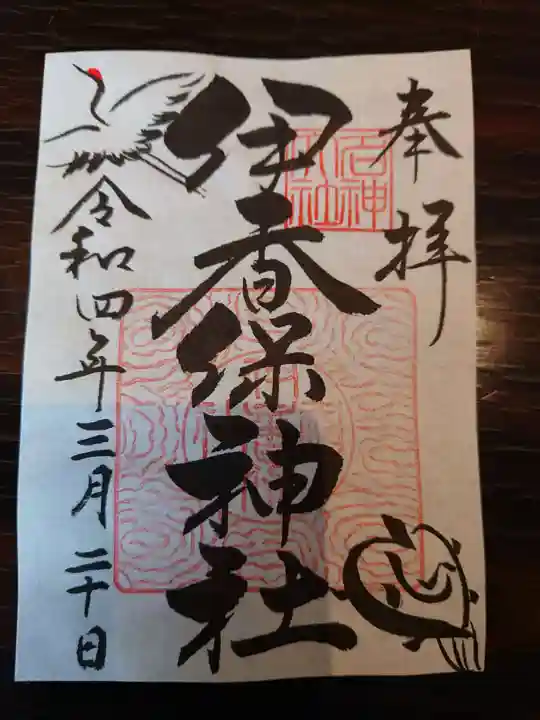 奉拝
伊香保神社
令和四年三月二十日